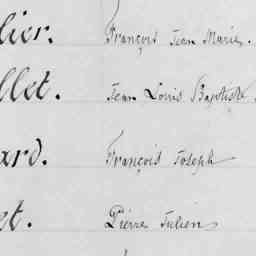 lier. François Jean Marie.
llet. Jean Louis Baptiste
ard. François Joseph
et. Pierre Julien